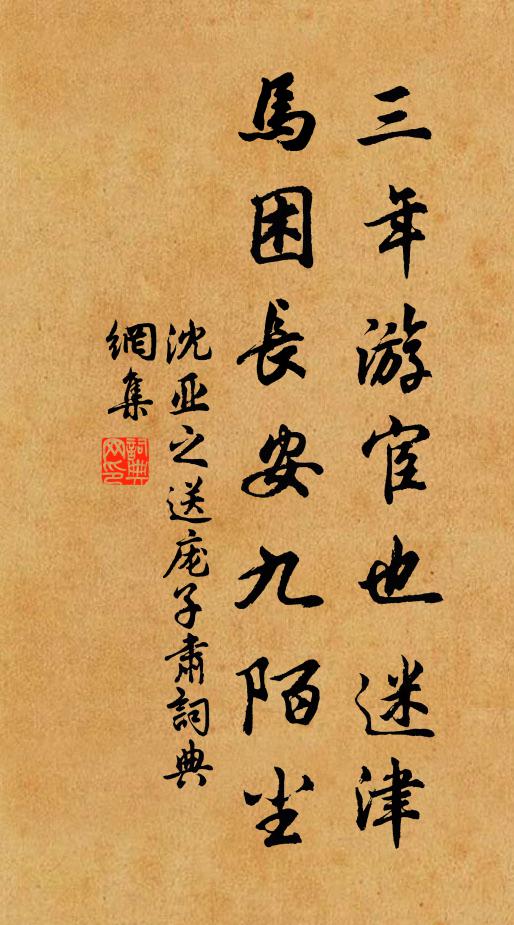 三年游宦也迷津
馬困長安九陌尘
沈亚之送庞子肃詞典
網集
詞典网印